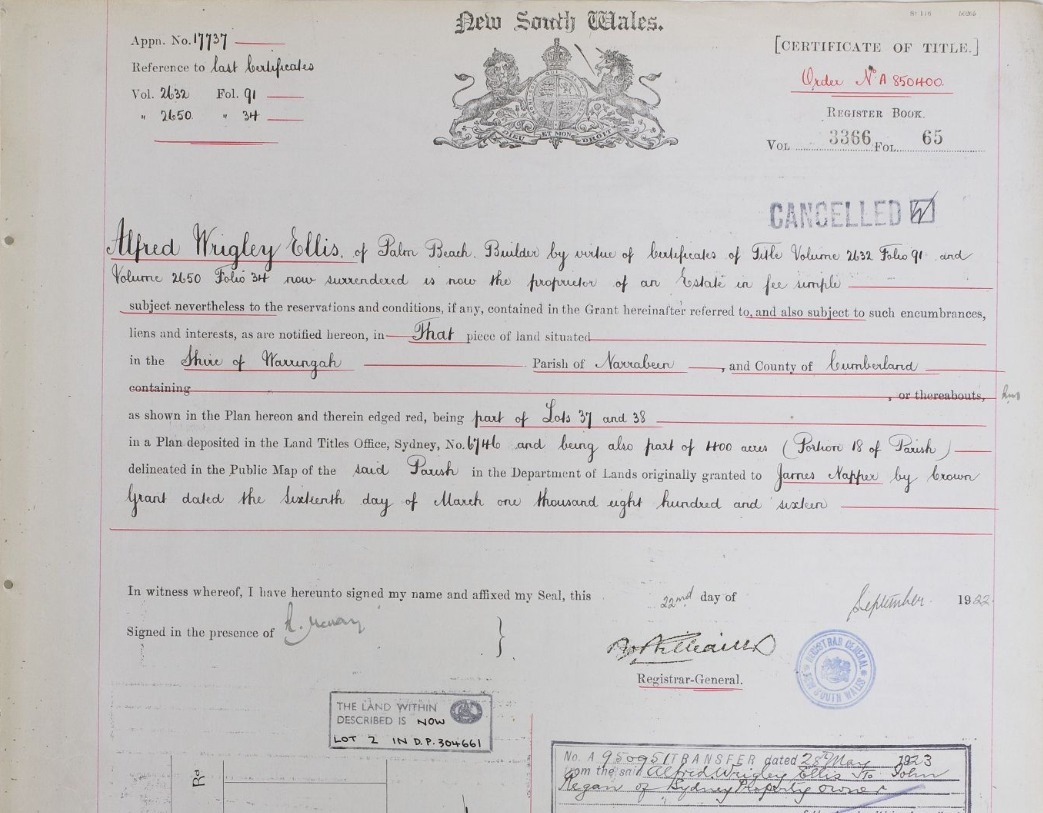 New South Wales.
Appn. No. 17737
Reference to last Certificates
Vol. 2632 Fol. 91
" 2650 " 34
[CERTIFICATE OF TITLE.]
Order No A 850400
REGISTER BOOK.
VOL 3366 FOL 65
DIEU ET MON DROIT
CANCELLED
Alfred Wrigley Ellis, of Palm Beach Builder by virtue of Certificates of Title Volume 2632 Folio 91 and
Volume 2650 Folio 34 now surrendered is now the proprietor of an Estate in fee simple
subject nevertheless to the reservations and conditions, if any, contained in the Grant hereinafter referred to, and also subject to such encumbrances,
liens and interests, as are notified hereon, in That piece of land situated
in the Shire of Warringah Parish of Narrabeen, and County of Cumberland
containing , or thereabouts,
as shown in the Plan hereon and therein edged red, being part of Lots 37 and 38
in a Plan deposited in the Land Titles Office, Sydney, No. 6746 and being also part of 400 acres (Portion 18 of Parish)
delineated in the Public Map of the said Parish in the Department of Lands originally granted to James Napper by Crown
Grant dated the sixteenth day of March one thousand eight hundred and sixteen
In witness whereof, I have hereunto signed my name and affixed my Seal, this 22nd day of September 1922
Signed in the presence of }
Registrar-General.
REGISTRAR GENERAL
NEW SOUTH WALES
THE LAND WITHIN
DESCRIBED IS NOW
LOT 2 IN D.P. 304661
Rd
No. A 950951 TRANSFER dated 28th May 1923
from the said Alfred Wrigley Ellis To John
Regan of Sydney Property owner